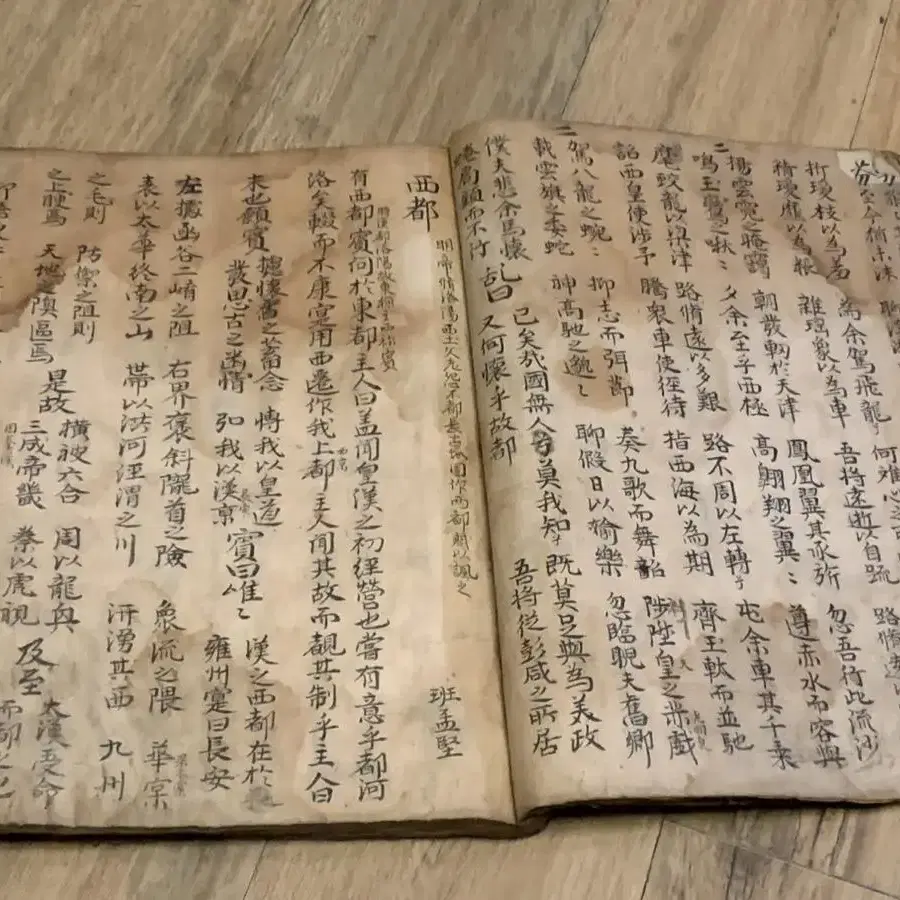 至今猶未沬
折瓊枝以為羞 為余駕飛龍 何難心之
糈瓊靡以為粻 雜瑶象以為車 吾將遠逝以自疏 路脩遠
揚雲霓之晻靄 朝發軔於天津 鳳凰翼其承旂 忽吾行此流沙
鳴玉鸞之啾〻 夕余至乎西極 高翺翔之翼〻 遵赤水而容與
麾蛟龍以梁津 路脩遠以多艱 路不周以左轉 屯余車其千乘
詔西皇使涉予 騰衆車使徑待 指西海以為期 齊玉軑而並馳
駕八龍之蜿〻 抑志而弭節 奏九歌而舞韶 陟陞皇之赫戲
載雲旗之委蛇 神高馳之邈〻 聊假日以偷樂 忽臨睨夫舊鄉
僕夫悲余馬懷 已矣哉國無人兮莫我知 既莫足與為美政
蜷局顧而不行 乱曰 又何懷乎故都 吾將從彭咸之所居
西都 班孟堅
有西都賓問於東都主人曰盖聞皇漢之初經營也嘗有意乎都河
洛矣輟而不康寔用西遷作我上都主人聞其故而覩其制乎主人曰
未也願賓 攄懷舊之蓄念 博我以皇道 漢之西都在於
發思古之幽情 弘我以漢京 賓曰唯〻 雍州寔曰長安
左據函谷二崤之阻 右界褒斜隴首之險 衆流之隈 華
表以太華終南之山 帶以洪河涇渭之川 汧湧其西 九州
之毛則 防禦之阻則 橫被六合 周以龍興 大漢受命
之上腴焉 天地之隩區焉 是故 三成帝畿 秦以虎視 及至